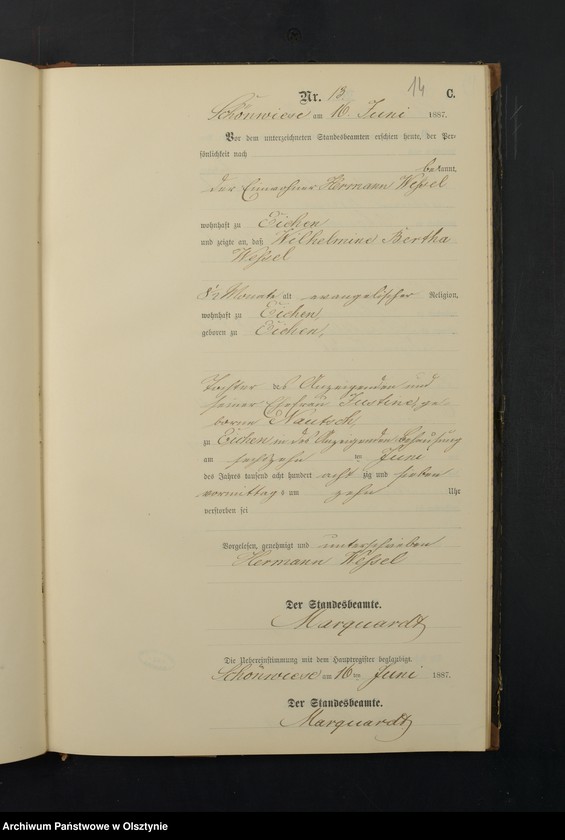 14
Nr. 13. C.
Schönwiese am 16. Juni 1887.
Vor dem unterzeichneten Standesbeamten erschien heute, der Per-
sönlichkeit nach
bekannt,
der Einwohner Hermann Weßel
wohnhaft zu Eichen
und zeigte an, daß Wilhelmine Bertha
Weßel
Monate alt evangelischer Religion,
wohnhaft zu Eichen,
geboren zu Eichen,
Tochter des Anzeigenden und
seiner Ehefrau Justine, ge-
borne Nautsch,
zu Eichen in des Anzeigenden Behausung
am sechszehn ten Juni
des Jahres tausend acht hundert achtzig und sieben
vormittags um zehn Uhr
verstorben sei
Vorgelesen, genehmigt und unterschrieben
Hermann Weßel
Der Standesbeamte.
Marquardt
Die Uebereinstimmung mit dem Hauptregister beglaubigt.
Schönwiese am 16 ten Juni 1887.
Der Standesbeamte.
Marquardt
Archiwum Państwowe w Olsztynie